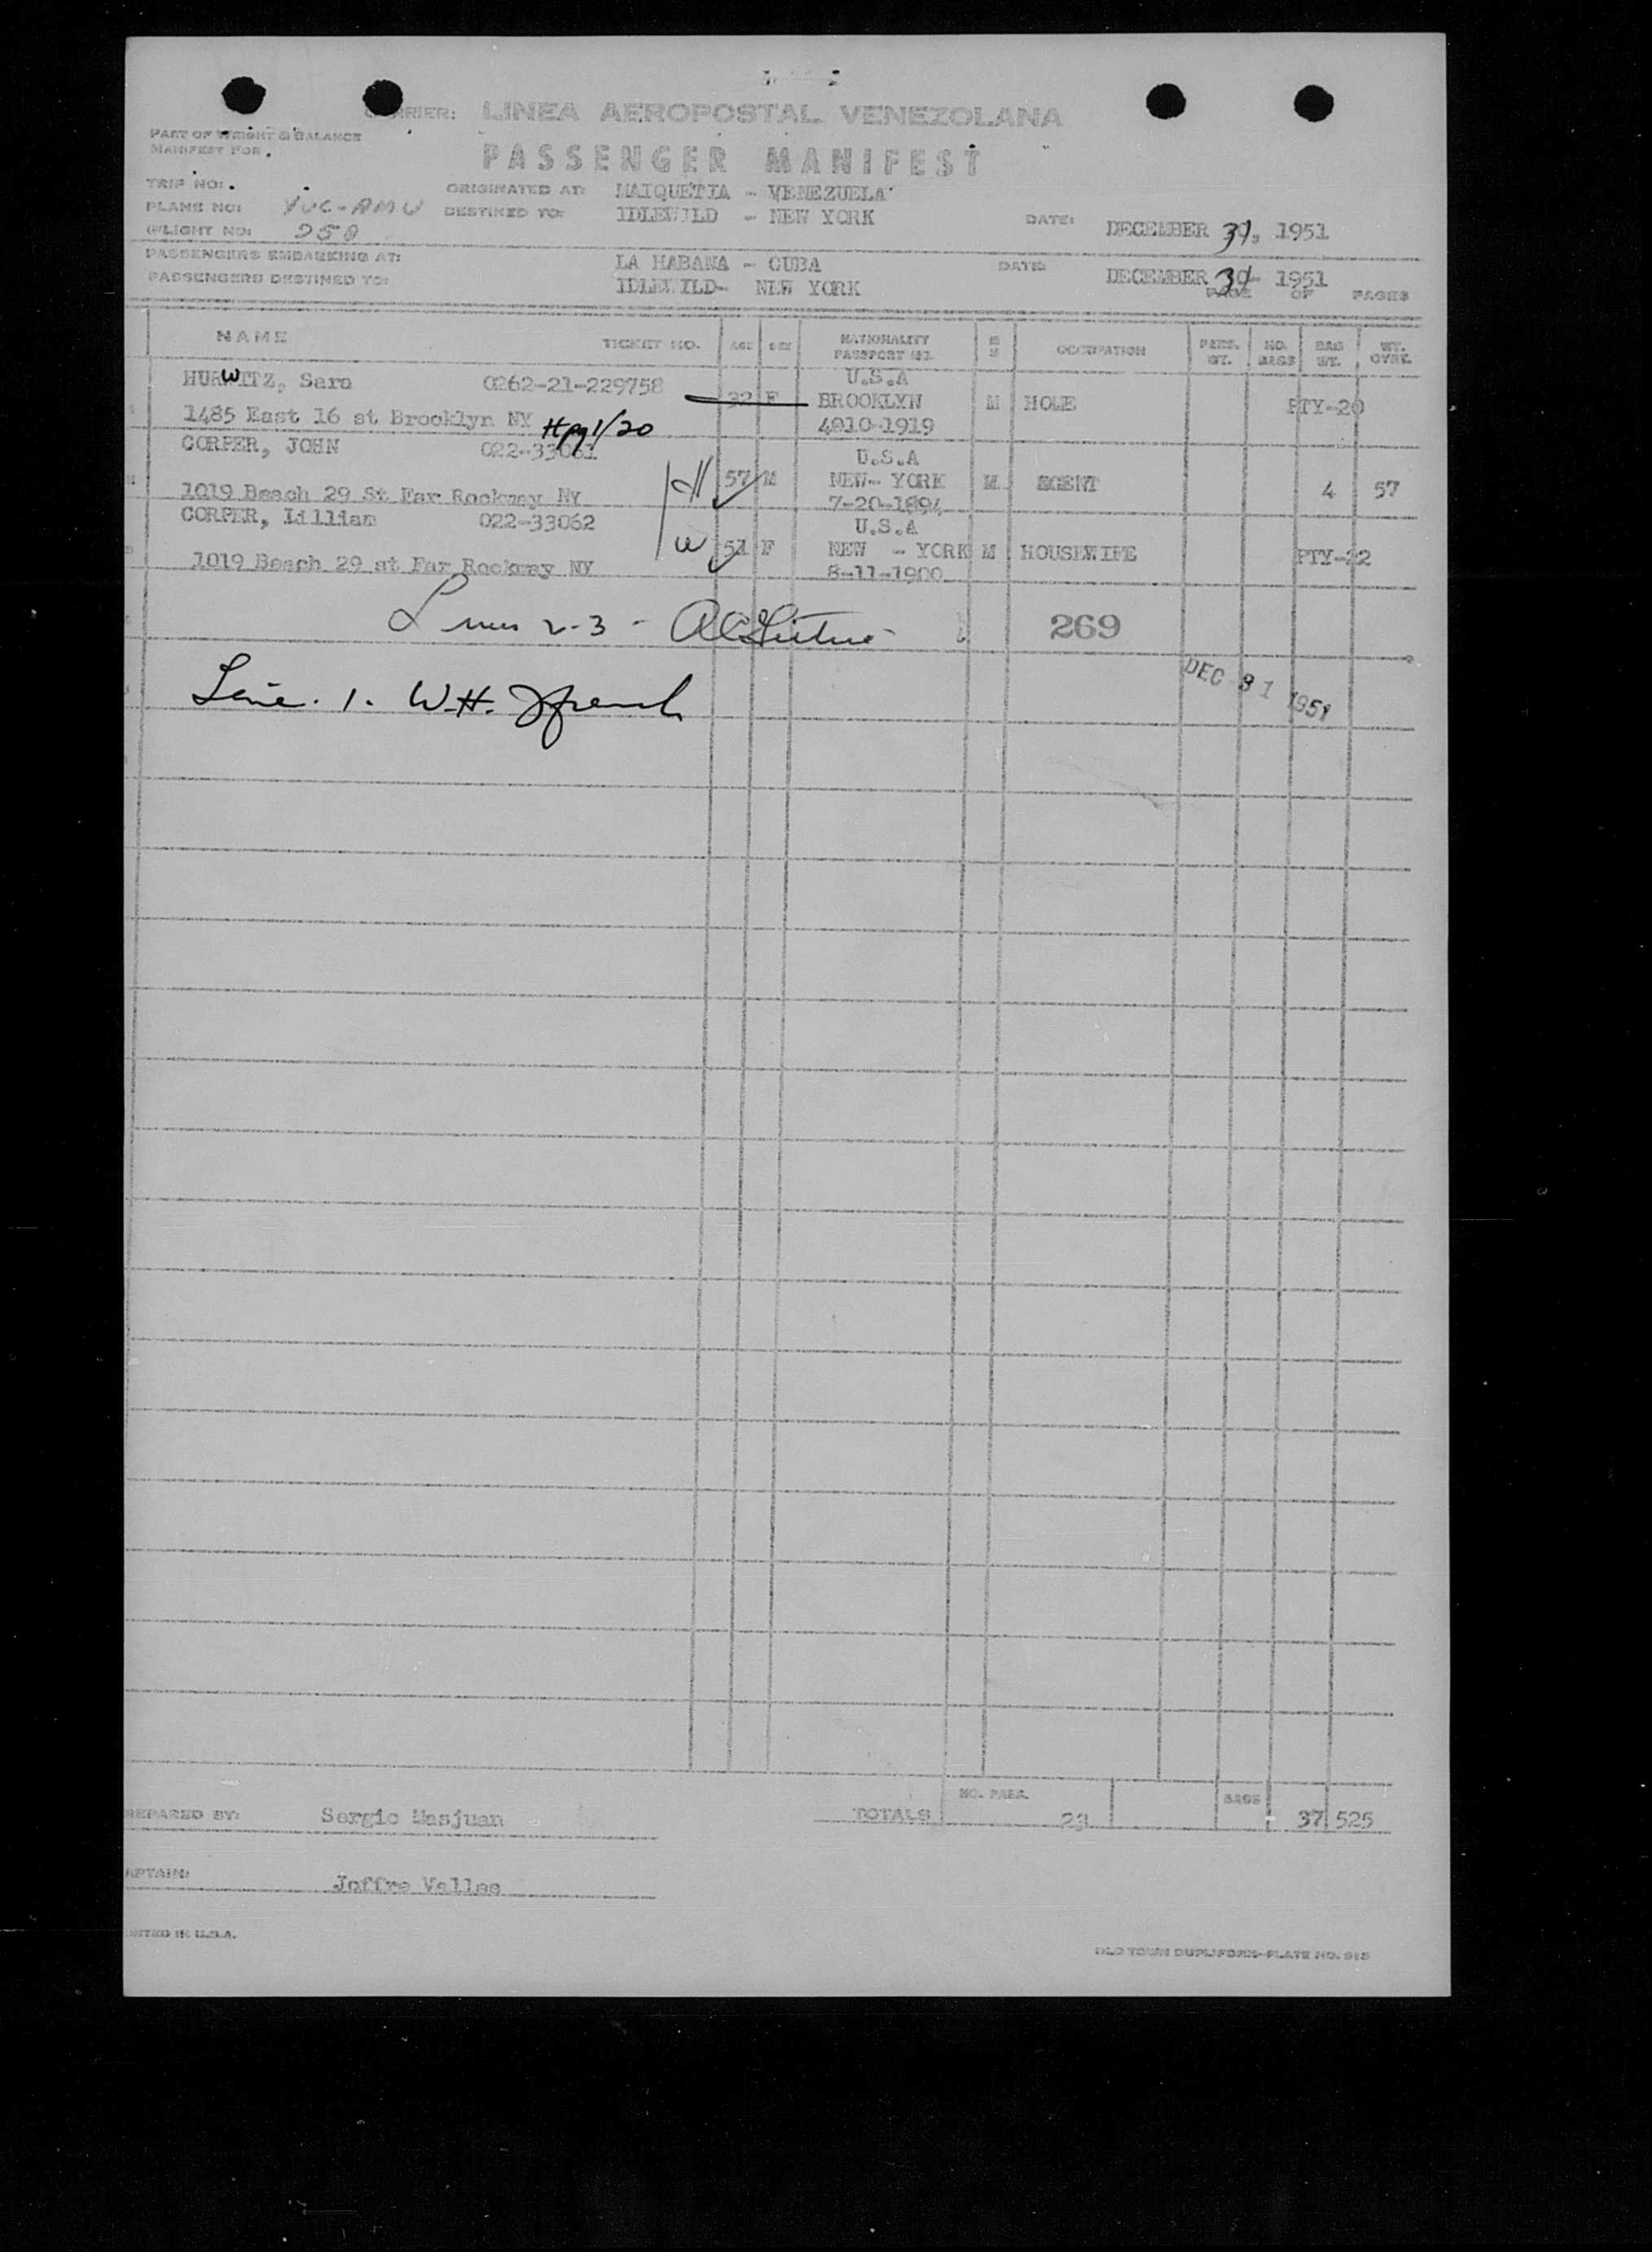 CARRIER: LINEA AEROPOSTAL VENEZOLANA
PART OF WEIGHT & BALANCE
MANIFEST FOR.
PASSENGER MANIFEST
TRIP NO:
ORIGINATED AT: MAIQUETIA - VENEZUELA
PLANE NO: YVC-AMU
DESTINED TO: IDLEWILD - NEW YORK
DATE: DECEMBER 31, 1951
FLIGHT NO: 258
PASSENGERS EMBARKING AT: LA HABANA - CUBA
DATE: DECEMBER 31 1951
PASSENGERS DESTINED TO: IDLEWILD- NEW YORK
PAGE OF PAGES
NAME TICKET NO. AGE SEX NATIONALITY PASSPORT NO. OCCUPATION PASS. WT. NO. BAGS BAG WT. WT.
HURWITZ, Sara 0262-21-229758 32 F U.S.A
BROOKLYN M HOLE PTY-20
1485 East 16 st Brooklyn NY 4010-1919
CORPER, JOHN 022-33061 U.S.A
H 57 M NEW- YORK M EGENT 4 57
1019 Beach 29 St Far Rockway NY 7-20-1894
CORPER, Lillian 022-33062 U.S.A
W 51 F NEW - YORK M HOUSEWIFE PTY-22
1019 Beach 29 st Far Rockway NY 8-11-1900
Lines 2-3 -
269
DEC 31 1951
Line. 1. W.H. French
NO. PASS. BAGS
PREPARED BY: Sergio Masjuan
TOTALS 23 37 525
CAPTAIN: Joffre Valles
PRINTED IN U.S.A.
OLD TOWN DUPLIFORM-PLATE NO. 913